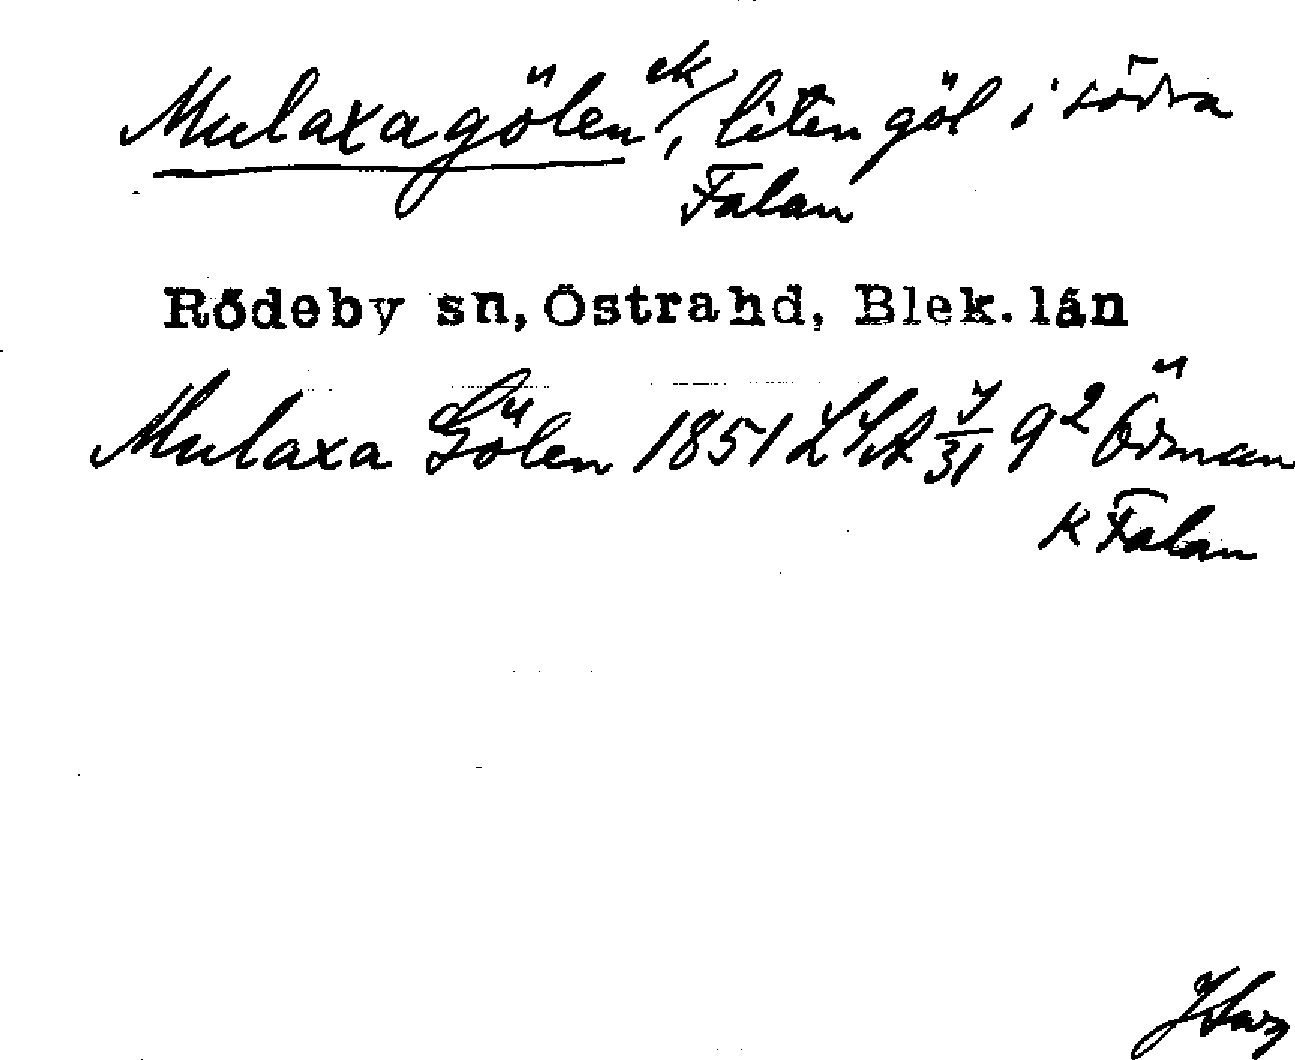 Mulaxagölen ek/, liten göl i södra
Falan
Rödeby sn, Östra hd, Blek. län
Mulaxa Gölen 1851 LSA 7/31 9² Örman
K Falan